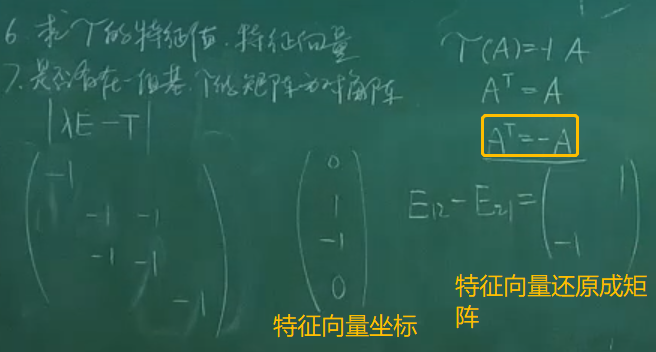 6. 求T的特征值、特征向量
7. 是否存在一组基,T的矩阵为对角阵
|λE-T|
-1
-1 -1
-1 -1
-1
0
1
-1
0
特征向量坐标
T(A)=-1 A
Aᵀ=A
Aᵀ=-A
E₁₂-E₂₁=( 1
-1 )
特征向量还原成矩
阵